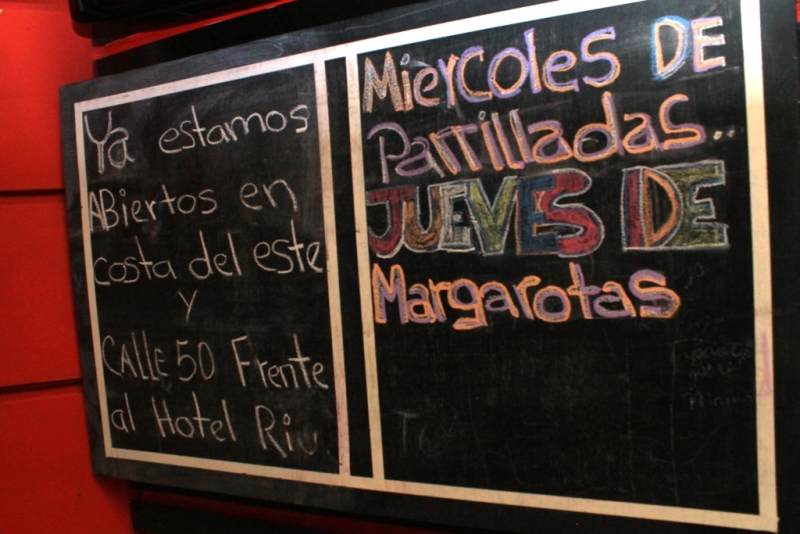 Ya estamos
ABiertos en
costa del este
y
CALLE 50 Frente
al Hotel Riu
Miercoles DE
Parrilladas...
JUEVES DE
Margarotas